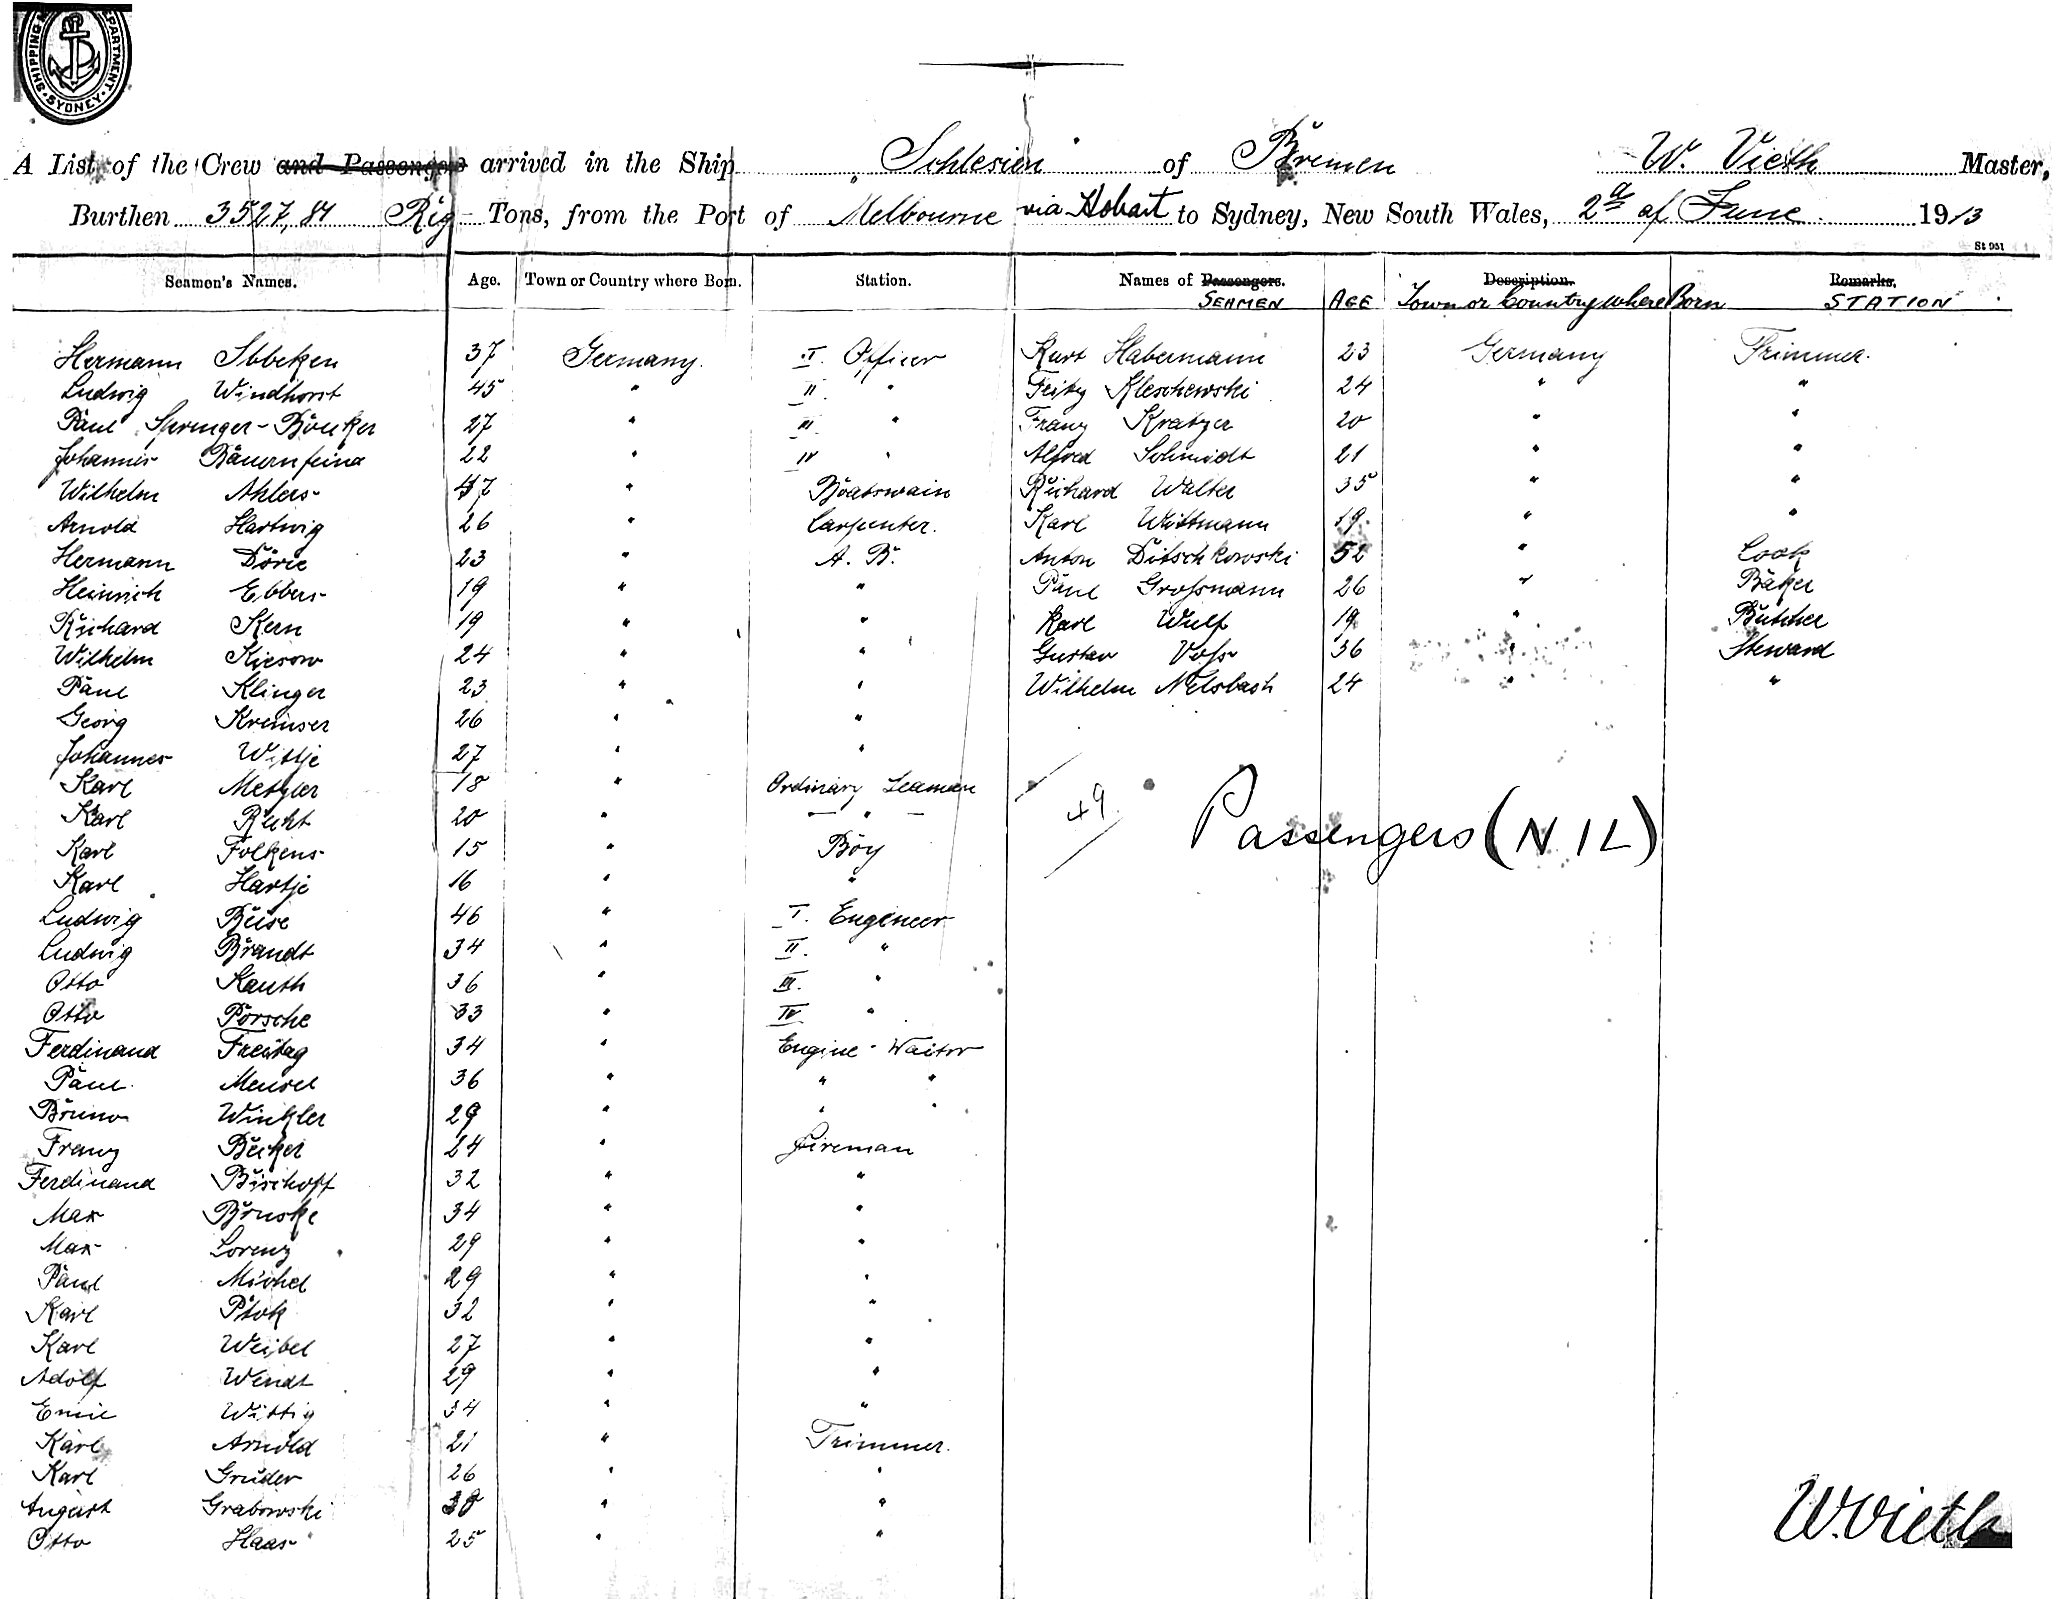 SHIPPING DEPARTMENT SYDNEY
A List of the Crew and Passengers arrived in the Ship Schlesien of Bremen W. Vieth Master,
Burthen 3527,84 Rig - Tons, from the Port of Melbourne via Hobart to Sydney, New South Wales, 2d of June 1913
St 951
Seamen's Names. Age. Town or Country where Born. Station. Names of Passengers. Description. Remarks.
SEAMEN AGE Town or Country where Born STATION
Hermann Ibbeken 37 Germany. I Officer Kurt Habermann 23 Germany Trimmer.
Ludwig Windhorst 45 " II " Fritz Kleschewski 24 " "
Paul Springer-Böuker 27 " III " Franz Kratzer 20 " "
Johannes Bauernfeind 22 " IV " Alfred Schmidt 21 " "
Wilhelm Ahlers 47 " Boatswain Richard Walter 35 " "
Arnold Hartwig 26 " Carpenter. Karl Wittmann 19 " "
Hermann Dörie 23 " A. B. Anton Ditschkowski 52 " Cook
Heinrich Ebbers 19 " " Paul Großmann 26 " Baker
Richard Kern 19 " " Karl Wulf 19 " Butcher
Wilhelm Kiesow 24 " " Gustav Voß 36 " Steward
Paul Klinger 23 " " Wilhelm Nelsbach 24 " "
Georg Kremser 26 " "
Johannes Wittje 27 " "
Karl Metzler 18 " Ordinary Seaman
Karl Recht 20 " — " —
Karl Folkens 15 " Boy
Karl Hartje 16 " "
49
Passengers (NIL)
Ludwig Beise 46 " I. Engineer
Ludwig Brandt 34 " II. "
Otto Kauth 36 " III. "
Otto Porsche 33 " IV "
Ferdinand Freitag 34 " Engine-Waiter
Paul Mensel 36 " " "
Bruno Winkler 29 " " "
Franz Becker 24 " Fireman
Ferdinand Bischoff 32 " "
Max Bruske 34 " "
Max Lorenz 29 " "
Paul Michel 29 " "
Karl Ptok 32 " "
Karl Weibel 27 " "
Adolf Windt 29 " "
Emil Wittig 34 " "
Karl Arnold 21 " Trimmer.
Karl Gruder 26 " "
August Grabowski 38 " "
Otto Haas 25 " "
W. Vieth